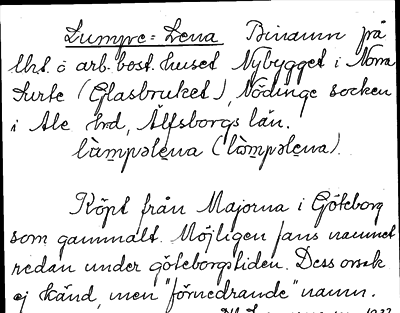 Lumpe-Lena Binamn på
Urt. o arb. bost. huset Nybygget i Norra
Surte (Glasbruket), Nödinge socken
i Ale hrd, Älfsborgs län.
Köpt från Majorna i Göteborg
som gammalt. Möjligen fans namnet
redan under göteborgstiden. Dess orsak
ej känd, men "förnedrande" namn.